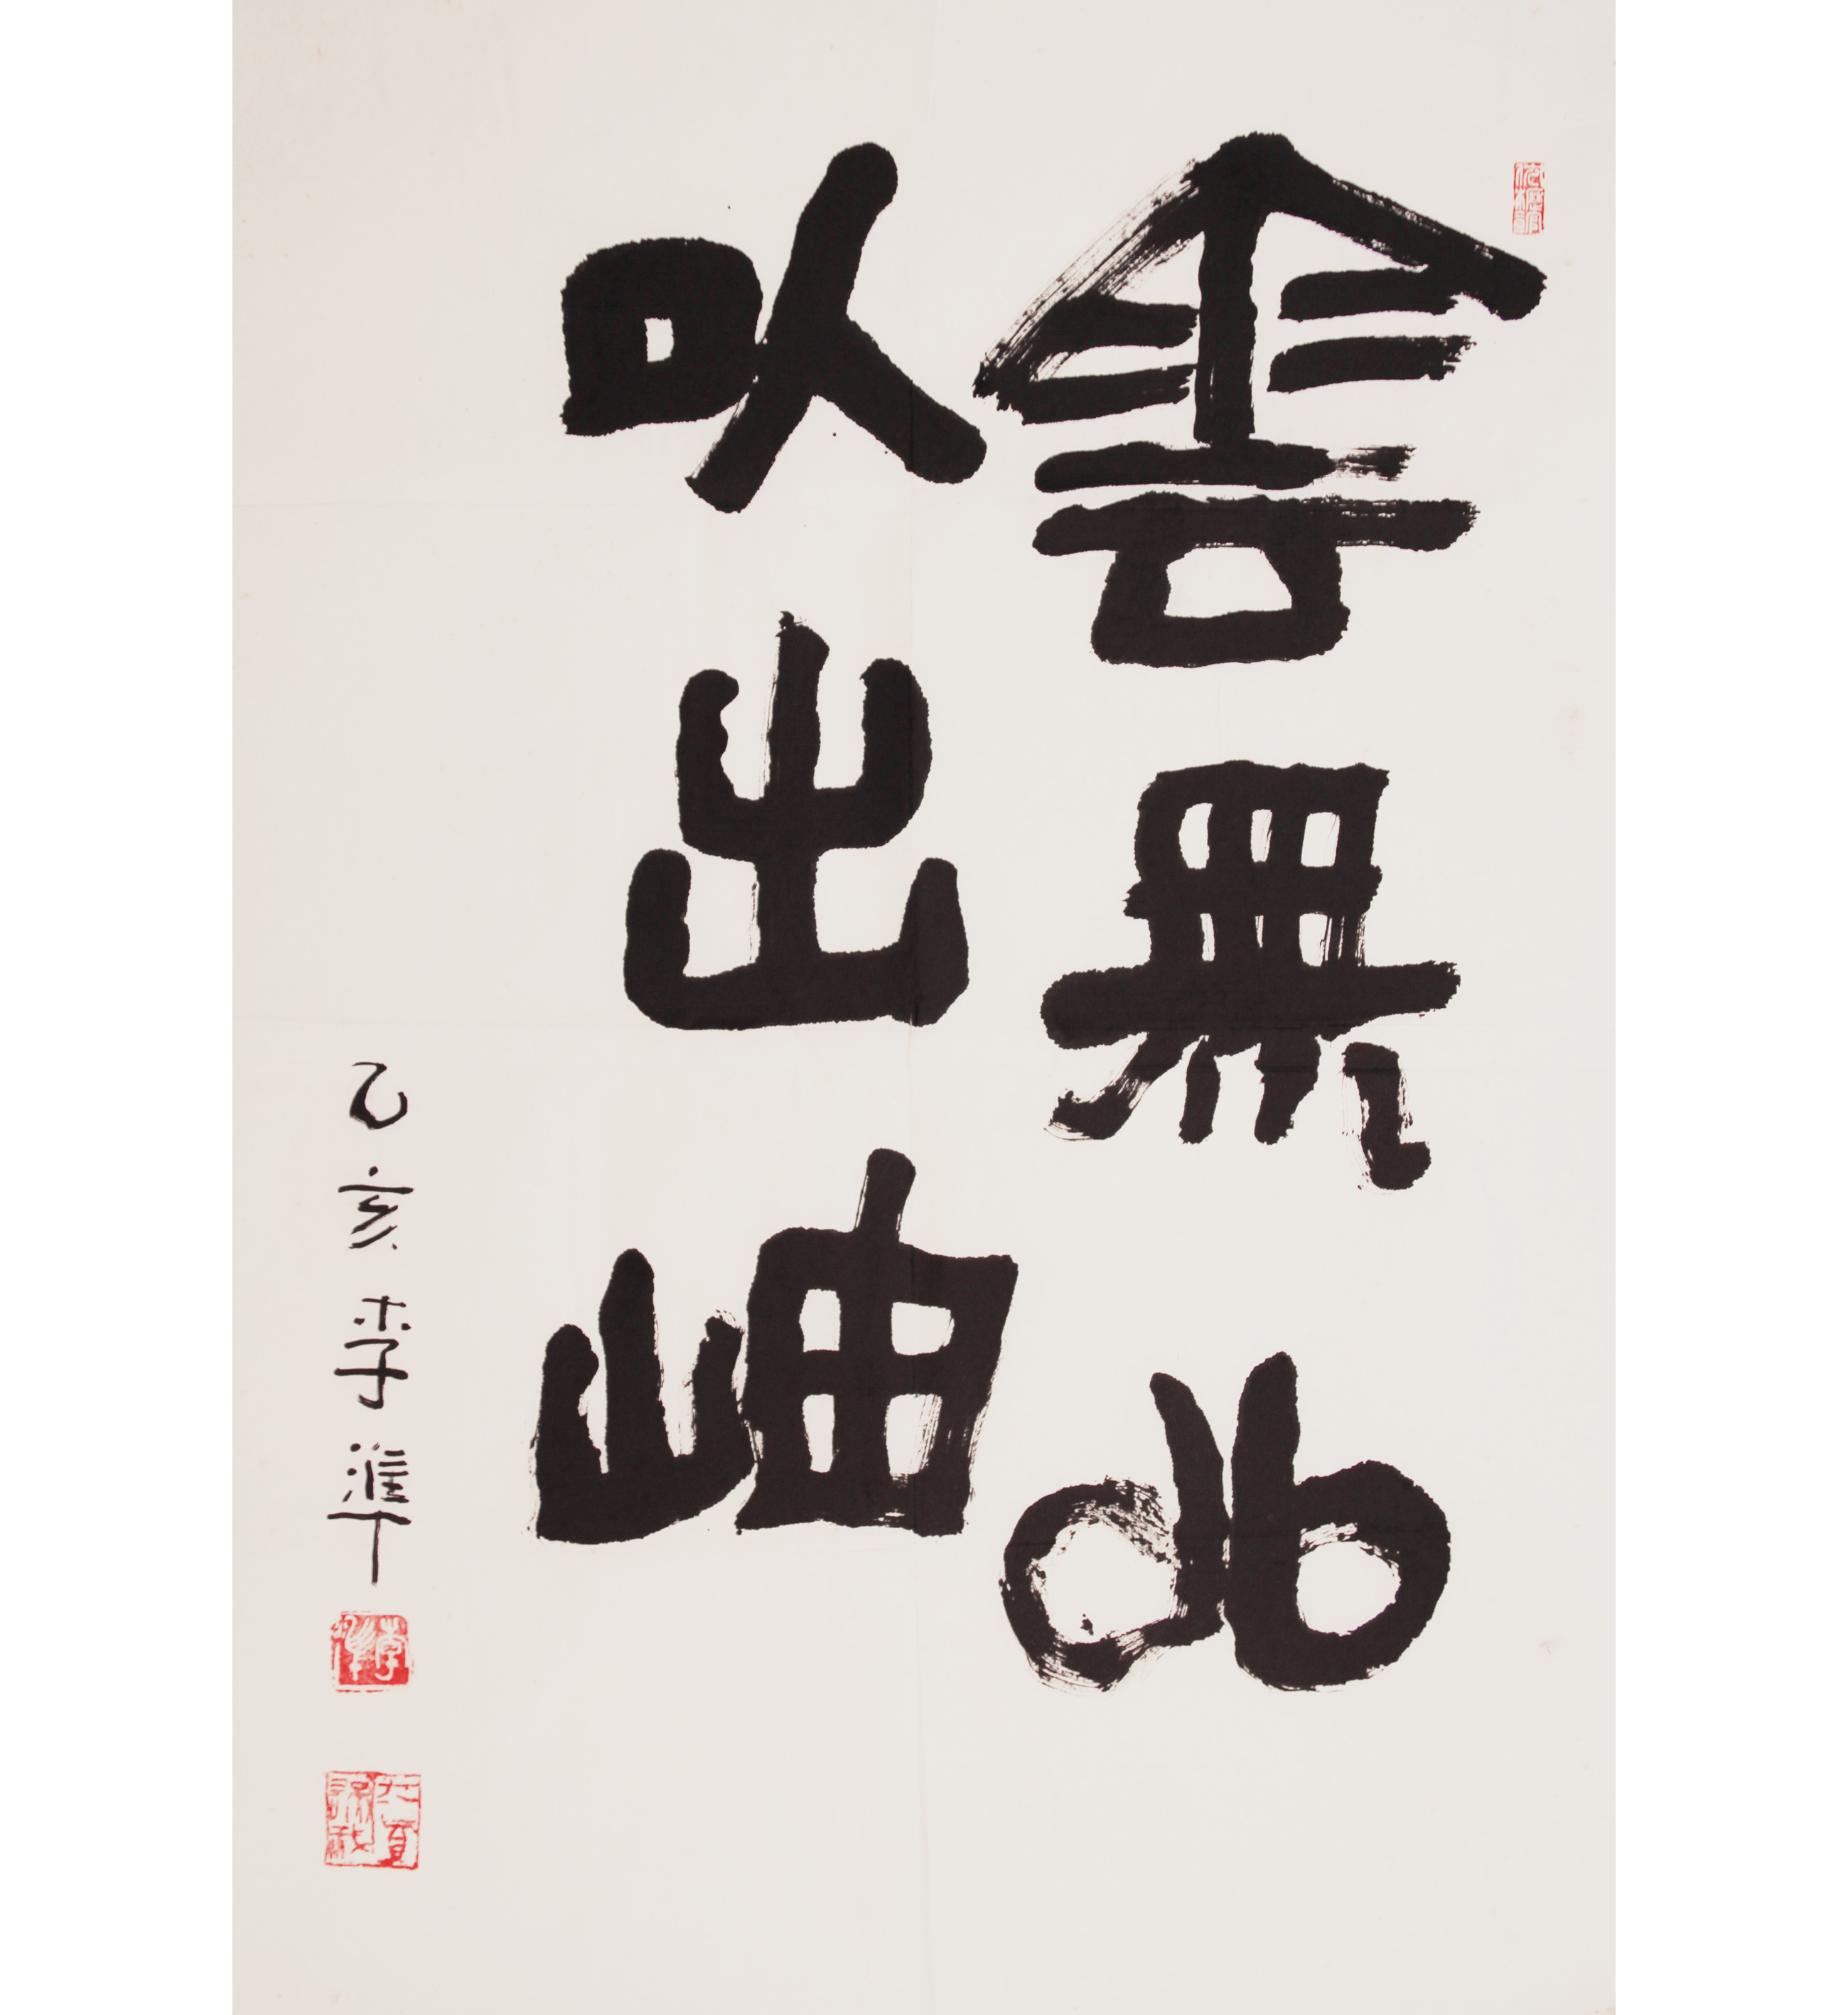 雲無心
以出岫
乙亥李準